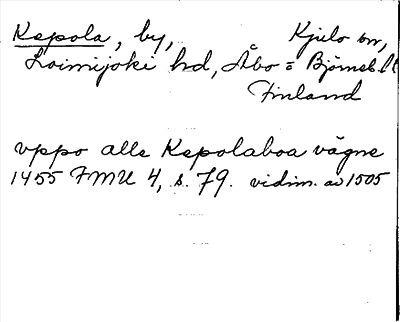 Kepola, by, Kjulo sn,
Loimijoki hd, Åbo = Björneb. ll
Finland
vppo alle Kepolaboa vägne
1455 FMU 4, s. 79. vidim. av 1505